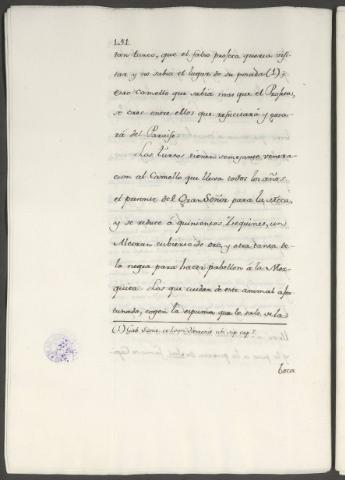 tan turco, que el falso profeta queria visi-
tar y no sabia el lugar de su posada (1);
este Camello que sabia mas que el Profeta,
se cree entre ellos que resucitará y goza-
rá del Paraiso.
Los turcos tienen semejante venera-
cion al Camello que lleva todos los años
el presente del Gran Señor para la Meca,
y se reduce á quinientos Zequines, un
Alcoran cubierto de oro, y otra tanta te-
la negra para hacer pabellon á la Mez-
quita. Los que cuidan de este animal afor-
tunado, cogen la espuma que le sale de la
(1)
cap.
boca